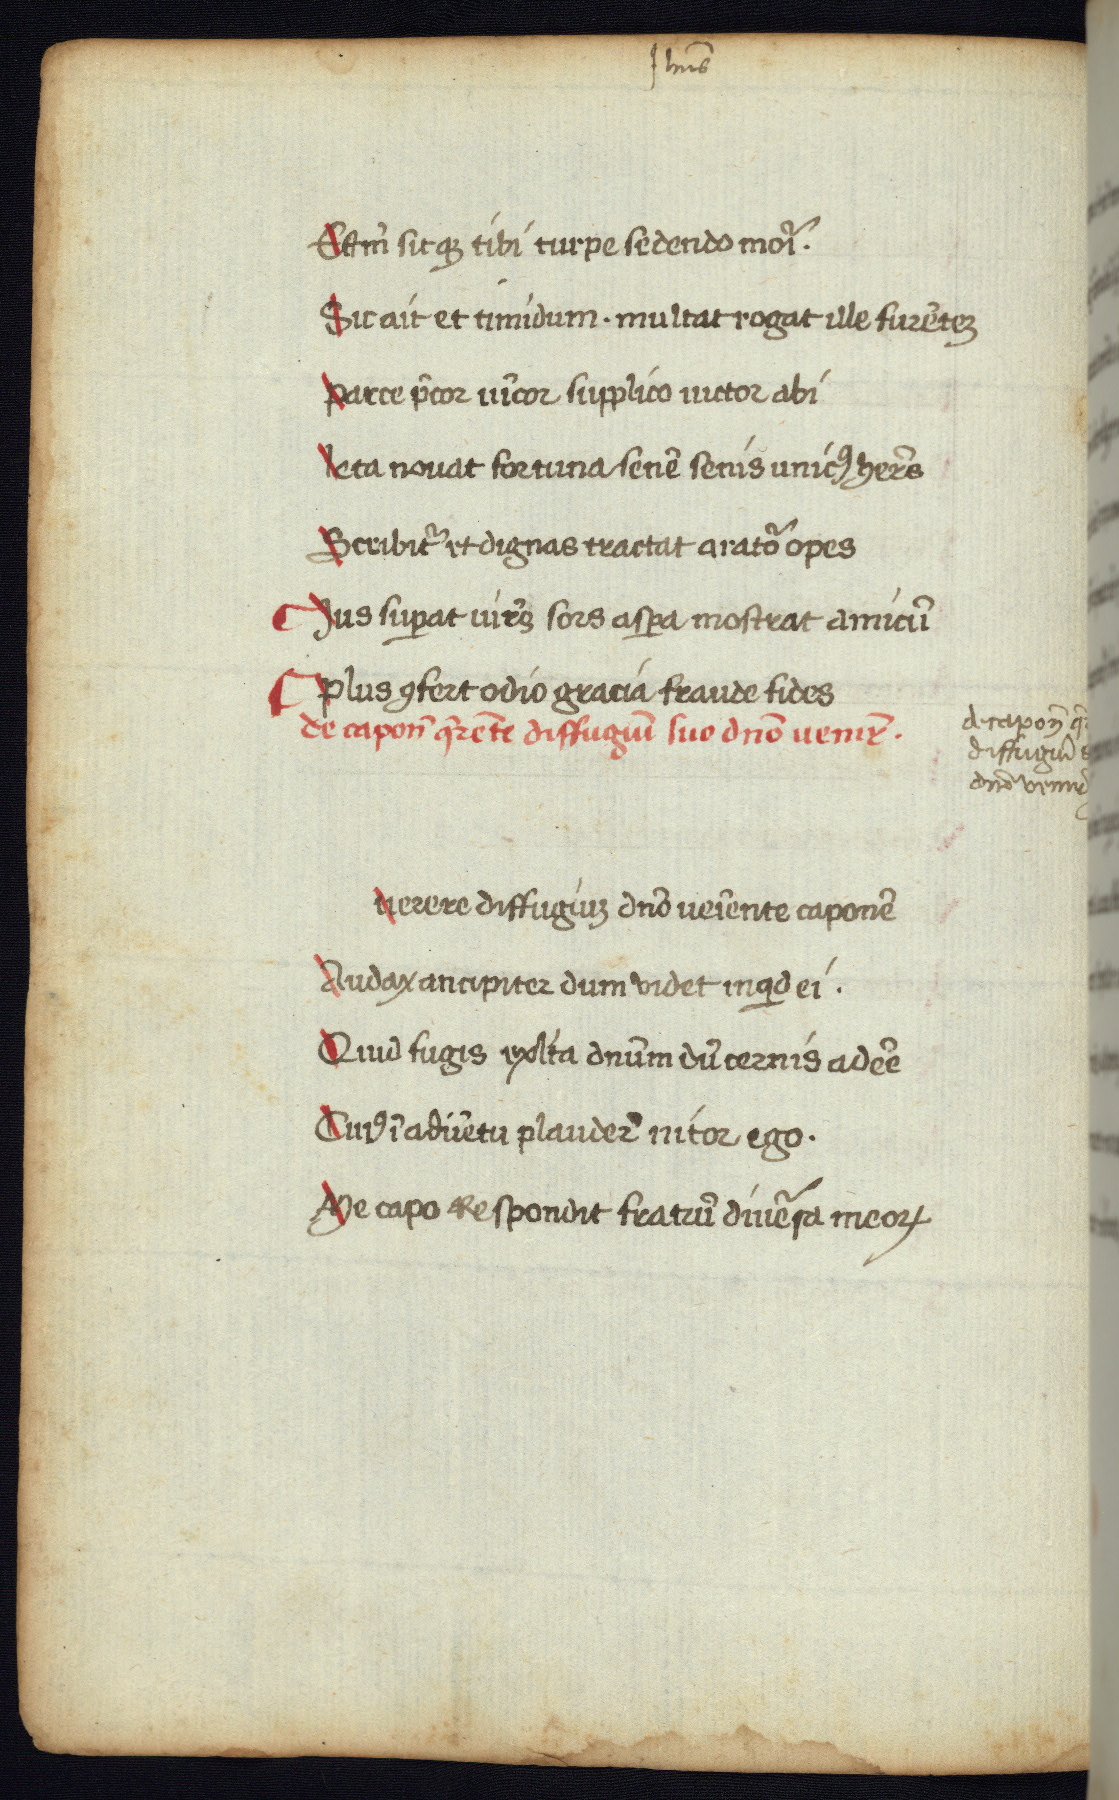 Jhus
Est m̄ sitq3 tibi turpe sedendo mori.
Sic ait et timidum. multat rogat ille furēte3
Parce p̄cor vīcor supplico victor abi
Leta novat fortuna senē senis unicꝰ herēs
Scribit᷑ et dignas tractat arator opes
Jus suꝑat vires sors asꝑa mostrat amicū
Plus ꝯfert odio gracia fraude fides
de capon̄ q̄rēte diffugiū suo dn̄o venire.
de capon̄ q̄
diffugiū
dn̄o venire
uerere diffugiu3 dn̄o veiente caponē
Audax ancipiter dum videt inquid ei.
Quid fugis exulta dnūm dū cernis adeē
Cuiꝰ ī advētu plauder̄ nitor ego.
Me capo Respondit fratrū divēsa meoꝝ